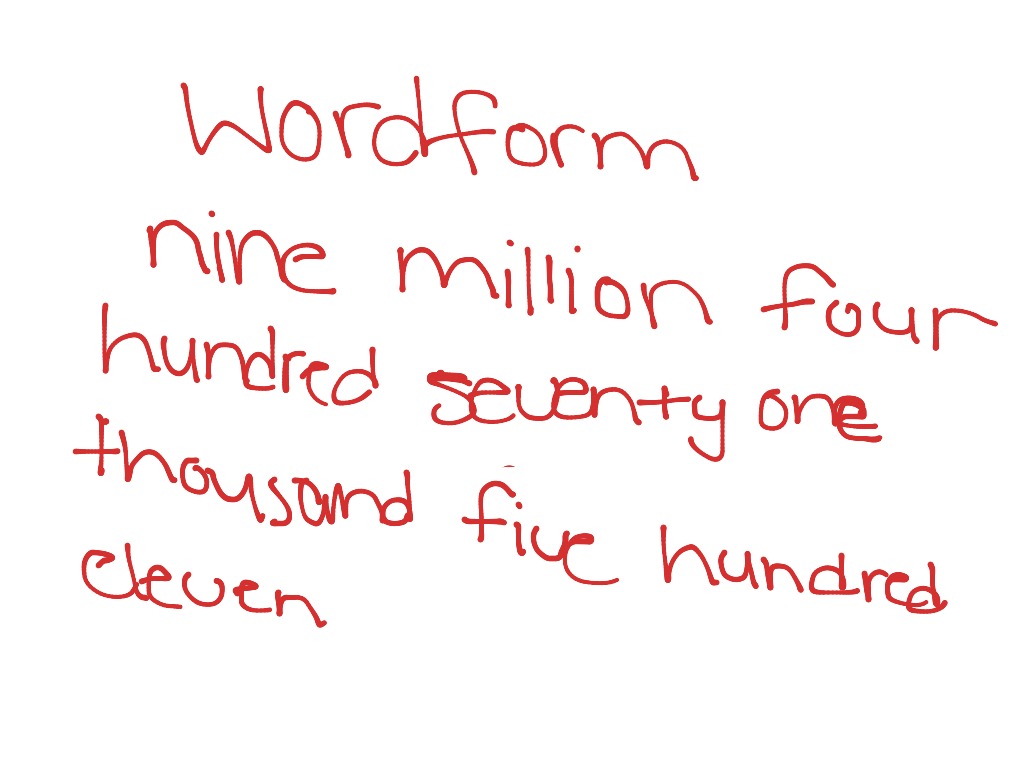 Wordform
nine million four
hundred seventy one
thousand five hundred
eleven